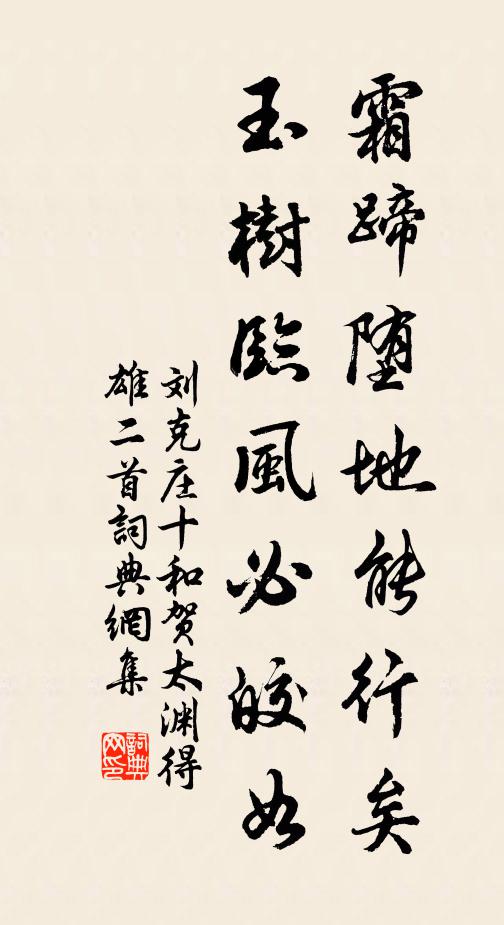 霜蹄堕地能行矣
玉樹臨風必皎如
刘克庄十和贺太渊得
雄二首詞典網集
詞典
网印